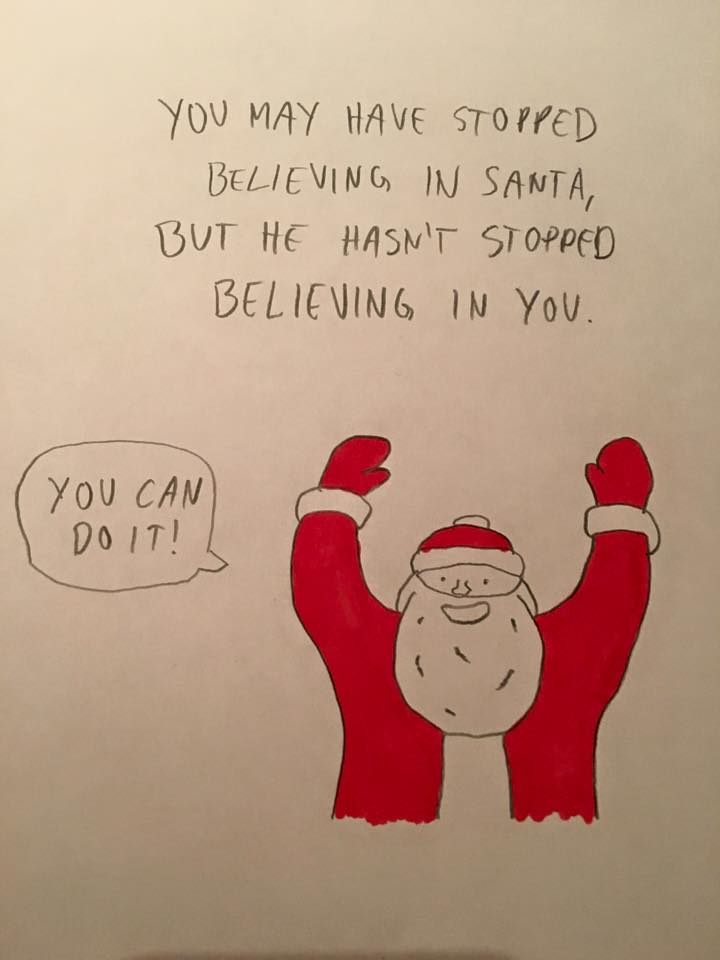 YOU MAY HAVE STOPPED
BELIEVING IN SANTA,
BUT HE HASN'T STOPPED
BELIEVING IN YOU.
YOU CAN
DO IT!